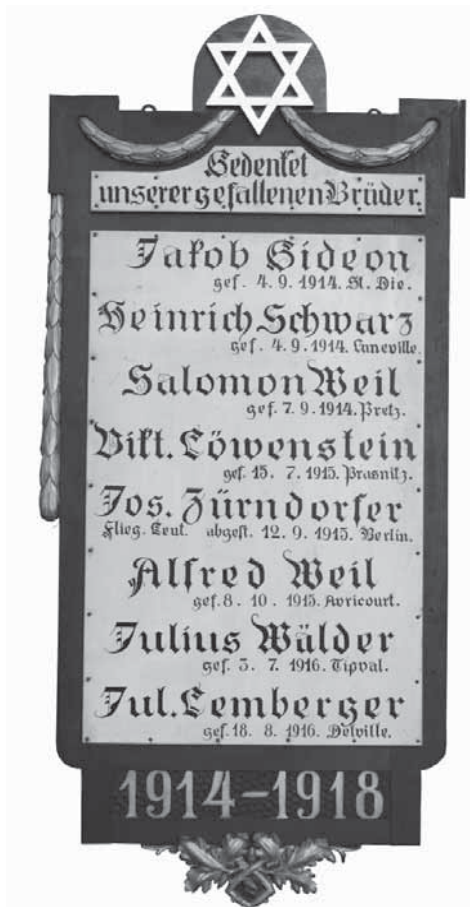 Gedenket
unserer gefallenen Brüder.
Jakob Gideon
gef. 4. 9. 1914. St. Die.
Heinrich Schwarz
gef. 4. 9. 1914. Luneville.
Salomon Weil
gef. 7. 9. 1914. Pretz.
Vikt. Löwenstein
gef. 15. 7. 1915. Prasnitz.
Jos. Zürndorfer
Flieg. Leut. abgest. 12. 9. 1915. Berlin.
Alfred Weil
gef. 8. 10. 1915. Avricourt.
Julius Wälder
gef. 3. 7. 1916. Tipval.
Jul. Lemberger
gef. 18. 8. 1916. Delville.
1914-1918